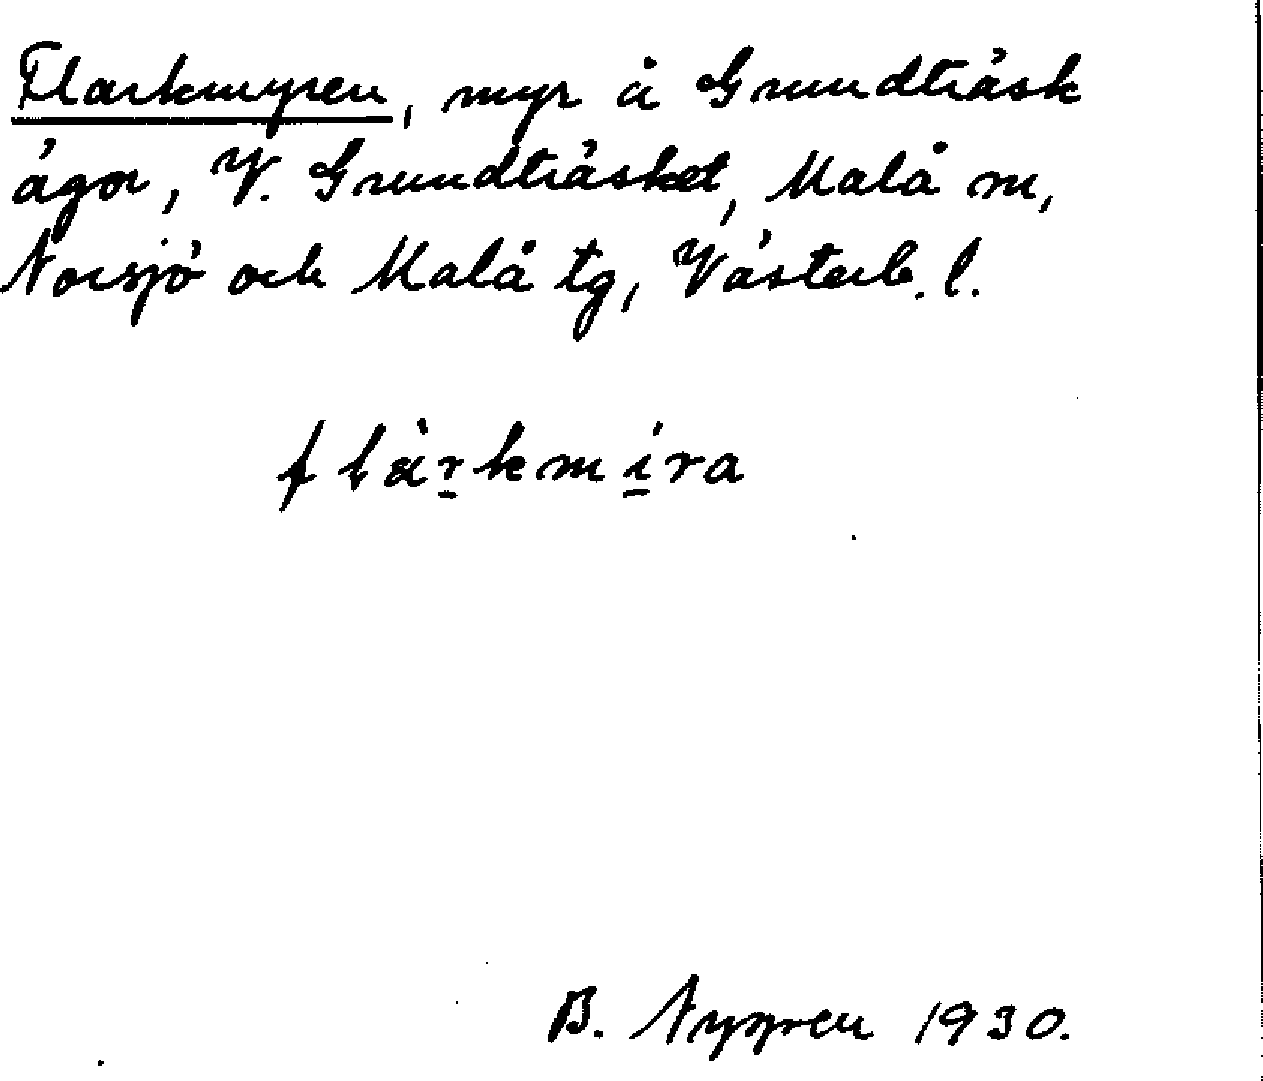 Flarkmyren, myr å Grundträsk
ägor, V. Grundträsket, Malå sn,
Norsjö och Malå tg, Västerb. l.
flàr̠kmí̠ra
B. Nygren 1930.